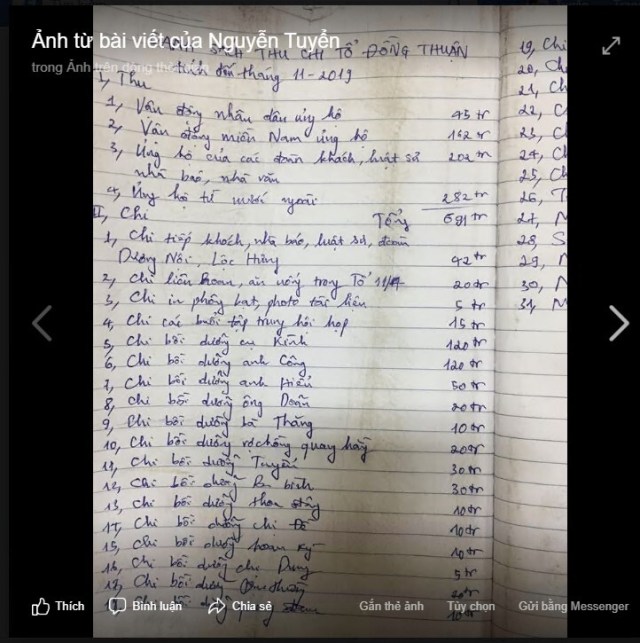 Ảnh từ bài viết của Nguyễn Tuyển
trong Ảnh trên dòng thời gian
SÁCH THU CHI TỔ ĐỒNG THUẬN
đến tháng 11-2019
I, Thu
1, Vận động nhân dân ủng hộ 45 tr
2, Vận động miền Nam ủng hộ 162 tr
3, Ủng hộ của các đoàn khách, luật sư 202 tr
nhà báo, nhà văn
4, Ủng hộ từ nước ngoài 282 tr
Tổng 691 tr
II, Chi
1, Chi tiếp khách, nhà báo, luật sư, đoàn
Dương Nội, Lộc Hưng 42 tr
2, Chi liên hoan, ăn uống trong Tổ 20 tr
3, Chi in phông bạt, photo tài liệu 5 tr
4, Chi các buổi tập trung hội họp 15 tr
5, Chi bồi dưỡng cụ Kình 120 tr
6, Chi bồi dưỡng anh Công 120 tr
7, Chi bồi dưỡng anh Hiểu 50 tr
8, Chi bồi dưỡng ông Doãn 20 tr
9, Chi bồi dưỡng bà Thăng 10 tr
10, Chi bồi dưỡng vợ chồng quay 20 tr
11, Chi bồi dưỡng Tuyển 30 tr
12, Chi bồi dưỡng 30 tr
13, Chi bồi dưỡng 10 tr
Chi bồi dưỡng chị 10 tr
15, Chi bồi dưỡng 10 tr
16, Chi bồi dưỡng 5 tr
17, Chi bồi dưỡng 20 tr
Chi bồi dưỡng 10 tr
19, Chi
20,
21, Ch
22, C
23, C
24, Ch
25, Ch
26, T
27, M
28, S
29, N
30, N
31, M
Thích Bình luận Chia sẻ Gắn thẻ ảnh Tùy chọn Gửi bằng Messenger